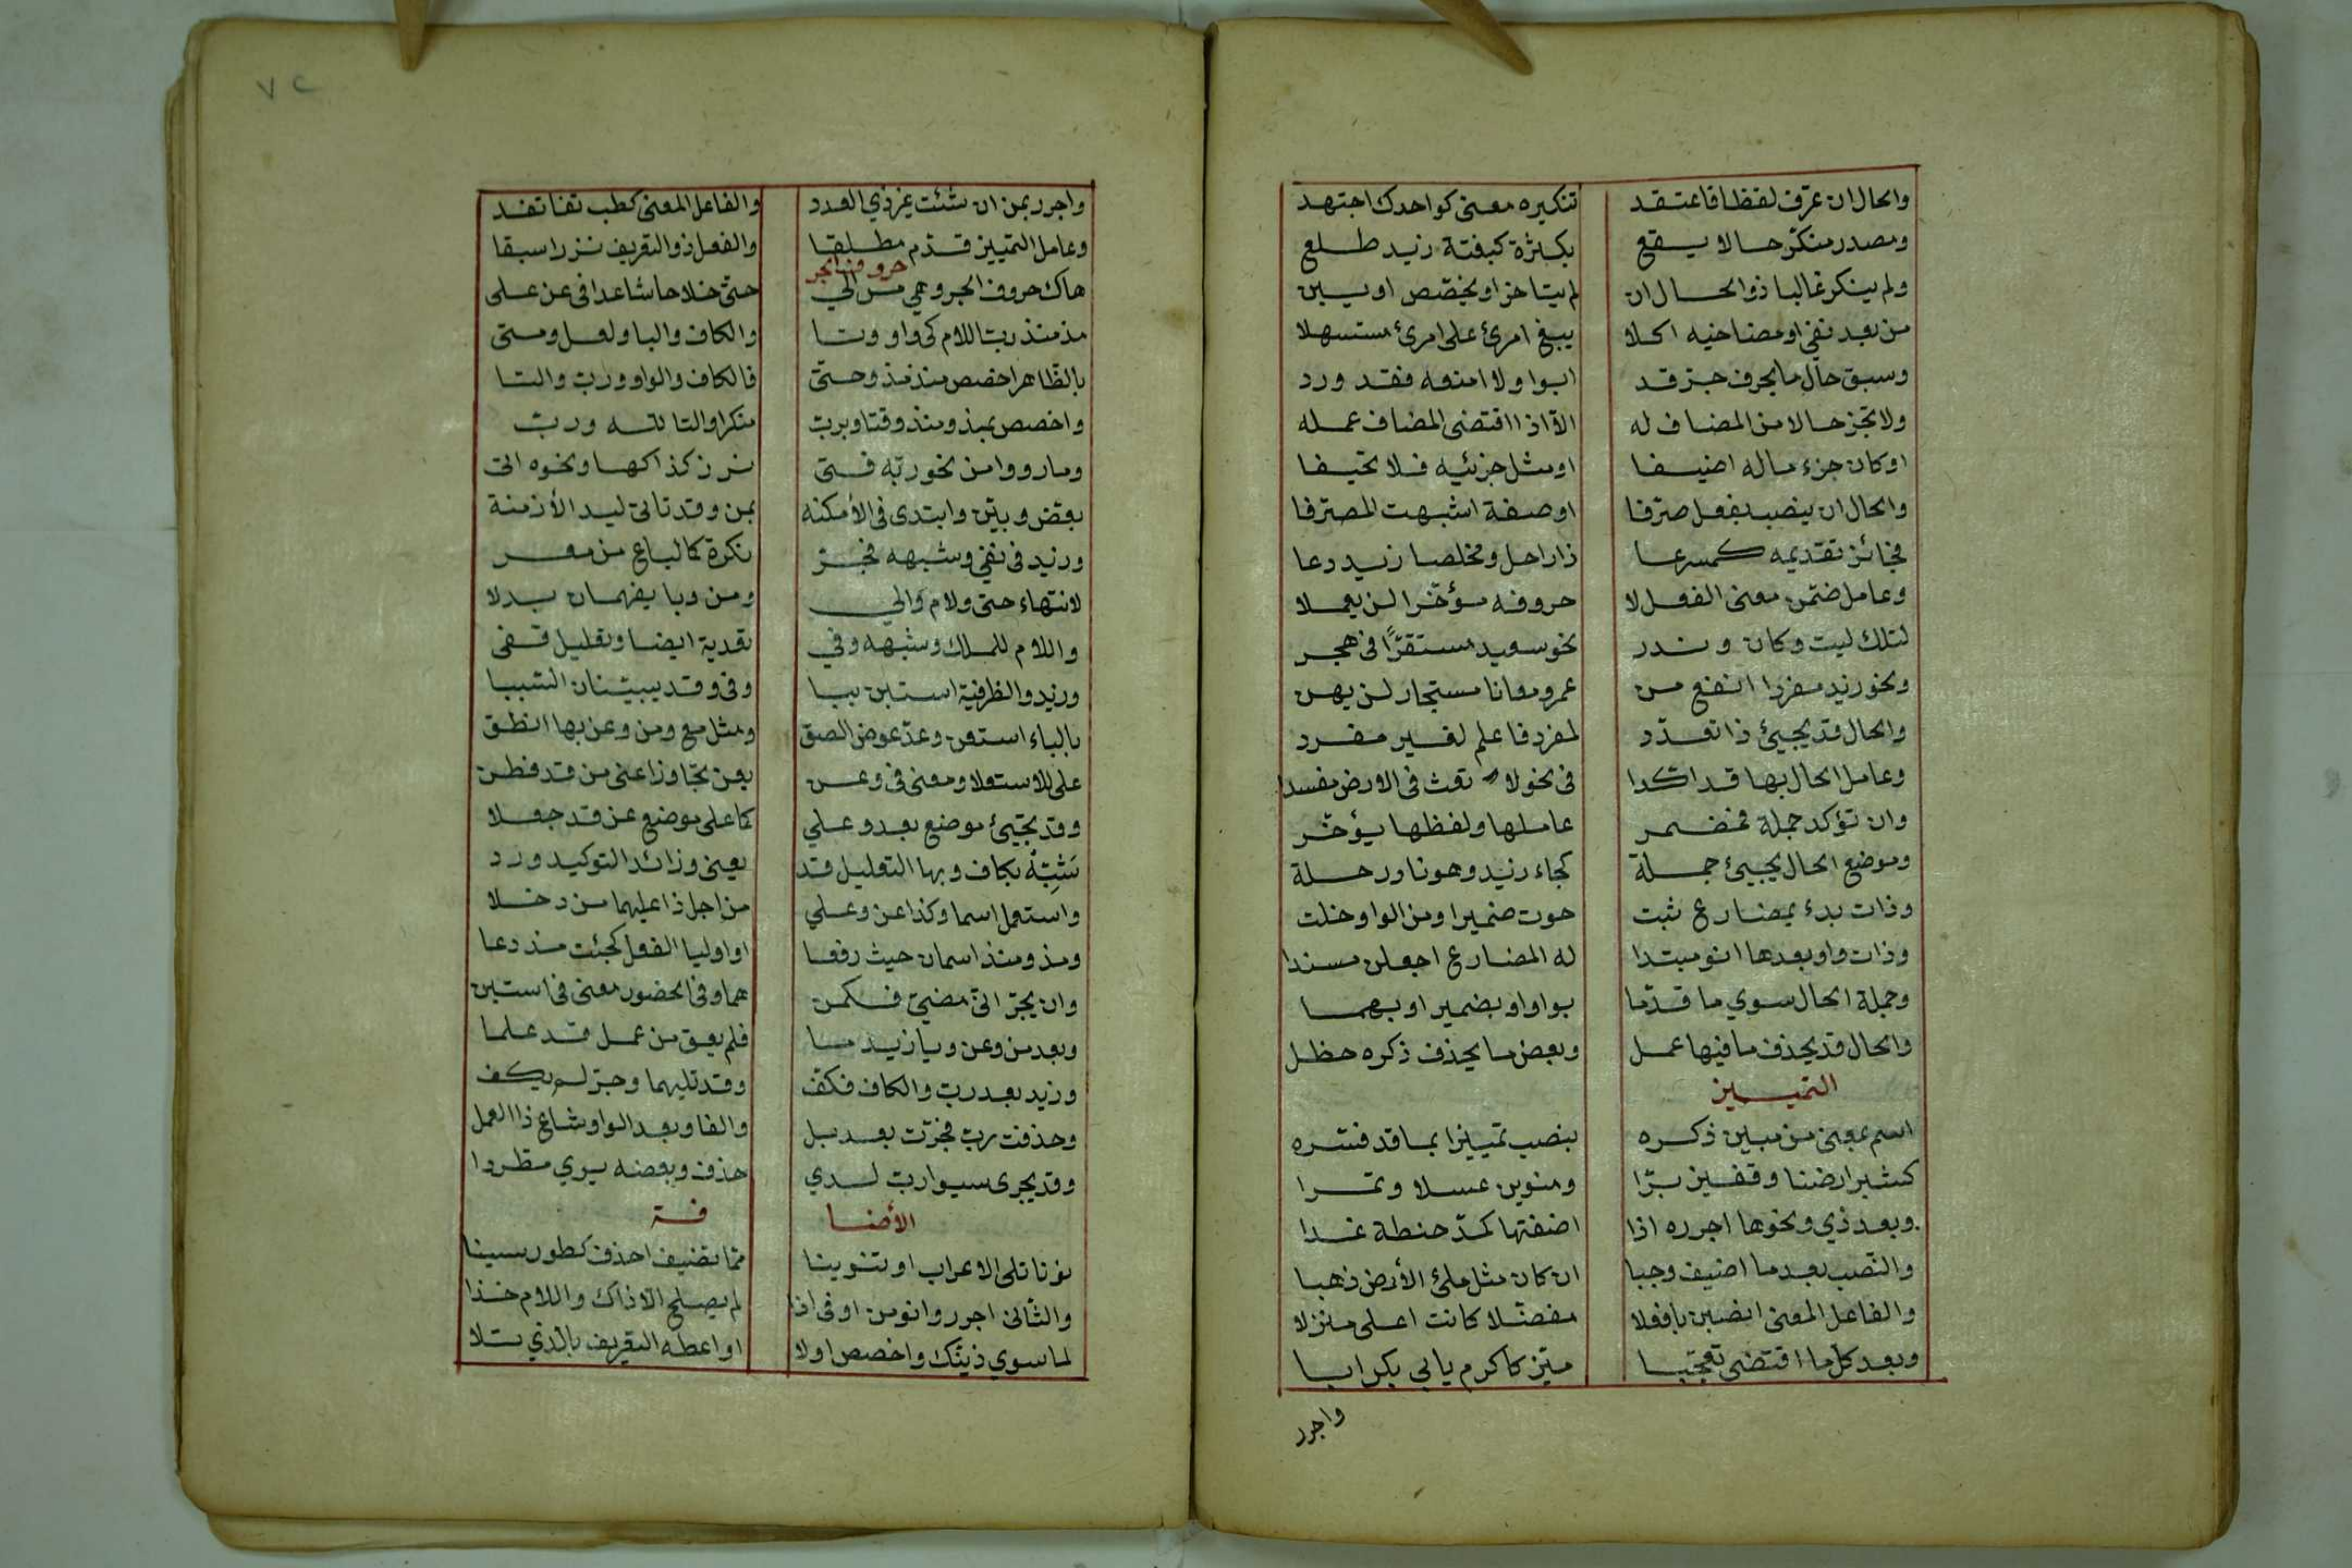 والحال ان عرّف لفظا فاعتقد تنكيره معنى كواحدك اجتهد
ومصدر منكر حالا يقع بكثرة كبغتة زيد طلع
ولم ينكر غالبا ذو الحال ان لم يتاخر او يخصّص او يبن
من بعد نفي او مضاهيه كلا يبغ امرئ على امرئ مستسهلا
وسبق حال ما بحرف جرّ قد ابوا ولا امنعه فقد ورد
ولا تجز حالا من المضاف له الّا اذا اقتضى المضاف عمله
او كان جزء ماله اضيفا او مثل جزئيه فلا تحيفا
والحال ان ينصب بفعل صرّفا او صفة اشبهت المصرّفا
فجائز تقديمه كمسرعا ذا راحل ومخلصا زيد دعا
وعامل ضمّن معنى الفعل لا حروفه مؤخّرا لن يعملا
لتلك ليت وكان وندر نحو سعيد مستقرًّا في هجر
ونحو زيد مفردا انفع من عمرو معانا مستجار لن يهن
والحال قد يجيئ ذا تعدّد لمفرد فاعلم لغير مفرد
وعامل الحال بها قد اكّدا في نحو لا تعث في الارض مفسدا
وان تؤكد جملة فمضمر عاملها ولفظها يؤخّر
وموضع الحال يجيئ جملة كجاء زيد وهو ناو رحلة
وذات بدء بمضارع ثبت حوت ضميرا ومن الواو خلت
وذات واو بعدها انو مبتدا له المضارع اجعلن مسندا
وجملة الحال سوي ما قدّما بواو او بضمير او بهما
والحال قد يحذف ما فيها عمل وبعض ما يحذف ذكره حظل
التمييز
اسم بمعنى من مبين ذكره ينصب تمييزا بما قد فسّره
كشبر ارضا وقفيز برّا ومنوين عسلا وتمرا
وبعد ذي ونحوها اجرره اذا اضفتها كمدّ حنطة غدا
والنصب بعد ما اضيف وجبا ان كان مثل ملئ الأرض ذهبا
والفاعل المعنى انصبن بافعلا مفضّلا كانت اعلى منزلا
وبعد كل ما اقتضى تعجّبا ميّز كاكرم بابي بكر ابا
واجرر
٧٢
واجرر بمن ان شئت غير ذي العدد والفاعل المعنى كطب نفسا تفد
وعامل التمييز قدّم مطلقا والفعل ذو التعريف نزرا سبقا
حروف الجر
هاك حروف الجر وهي من الي حتى خلا حاشا عدا في عن على
مذ منذ ربّ اللام كي واو وتا والكاف والبا ولعل ومتى
بالظّاهر اخصص منذ مذ وحتى فالكاف والواو وربّ والتا
واخصص بمذ ومنذ وقتا وبربّ منكرا والتا لله وربّ
وما رووا من نحو ربّه فتى نزر كذا كها ونحوه اتى
بعّض وبيّن وابتدى في الأمكنه بمن وقد تاتى لبدء الأزمنة
وزيد في نفي وشبهه فجرّ نكرة كما لباغ من مفر
لانتهاء حتى ولام والي ومن وبا يفهمان بدلا
واللام للملك وشبهه وفي تعدية ايضا وتعليل قفى
وزيد والظرفية استبن ببا وفي وقد يبيّنان السّببا
بالباء استعن وعدّ عوض الصق ومثل مع ومن وعن بها انطق
على للاستعلا ومعنى في وعن بعن تجاوزا عنى من قد فطن
وقد تجيئ موضع بعد وعلي كما على موضع عن قد جعلا
شَبِّهْ بكاف وبها التعليل قد يعنى وزائد التوكيد ورد
واستعمل اسما وكذا عن وعلي من اجل ذا عليهما من دخلا
ومذ ومنذ اسمان حيث رفعا او اوليا الفعل كجئت مذ دعا
وان يجرّا في مضيّ فكمن هما وفي الحضور معنى في استبن
وبعد من وعن وبا زيد ما فلم يعق من عمل قد علما
وزيد بعد ربّ والكاف فكفّ وقد تليهما وجرّ لم يكف
وحذفت ربّ فجرّت بعد بل والفا وبعد الواو شاع ذا العمل
وقد يجرى بسوا ربّ لدي حذف وبعضه يري مطّردا
الأضافة
نونا تلى الاعراب او تنوينا ممّا تضيف احذف كطور سينا
والثّاني اجرر وانو من او في اذا لم يصلح الّا ذاك واللام خذا
لما سوي ذينك واخصص اولا او اعطه التعريف بالّذي تلا